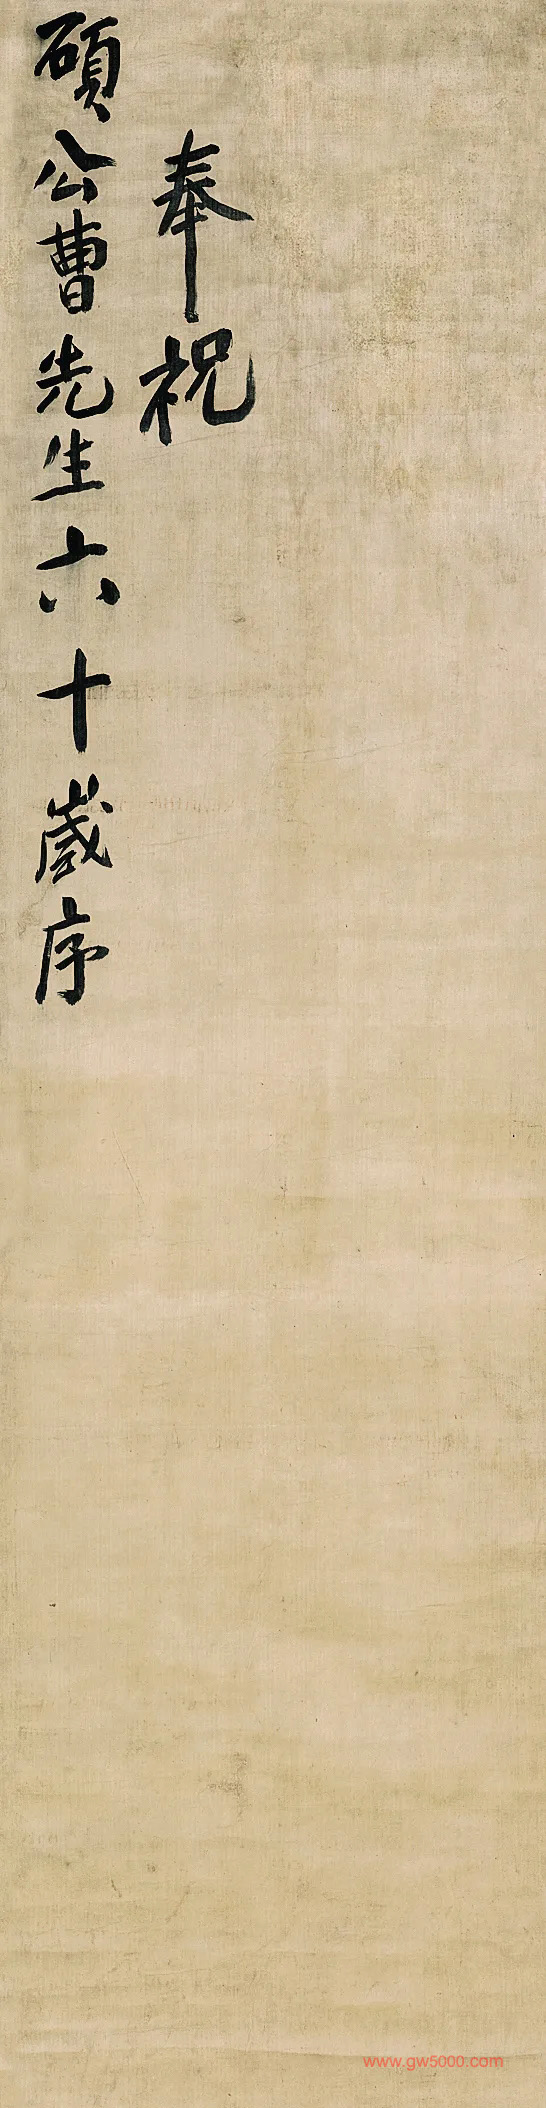 奉祝
碩公曹先生六十歲序
www.gw5000.com